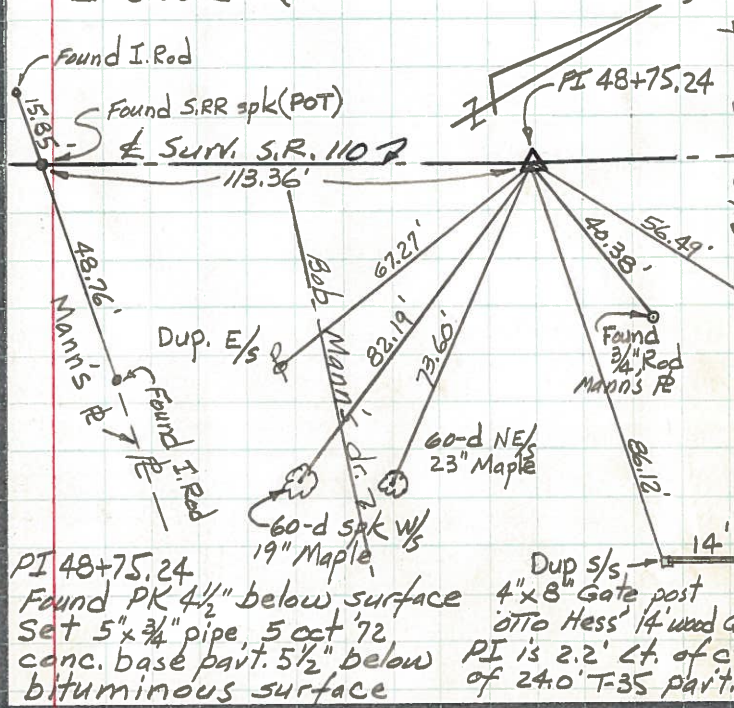 Found I.Rod
15.85
Found S.RR spk (POT)
PI 48+75.24
℄ Surv. S.R. 110
113.36'
48.76'
Mann's ℞
℞
Found I.Rod
Bob Mann's dr.
67.27'
82.19'
73.60'
40.38'
56.49'
86.12'
Dup. E/s
Found
3/4" Rod
Manns ℞
60-d NE/s
23" Maple
60-d spk W/s
19" Maple
PI 48+75.24
Found PK 4½" below surface
Set 5"x¾" pipe, 5 oct '72
conc. base pavt. 5½" below
bituminous surface
Dup S/s
14'
4"x8" Gate post
OTTO Hess' 14' wood
PI is 2.2' Lt. of
of 24.0' T-35 pavt.